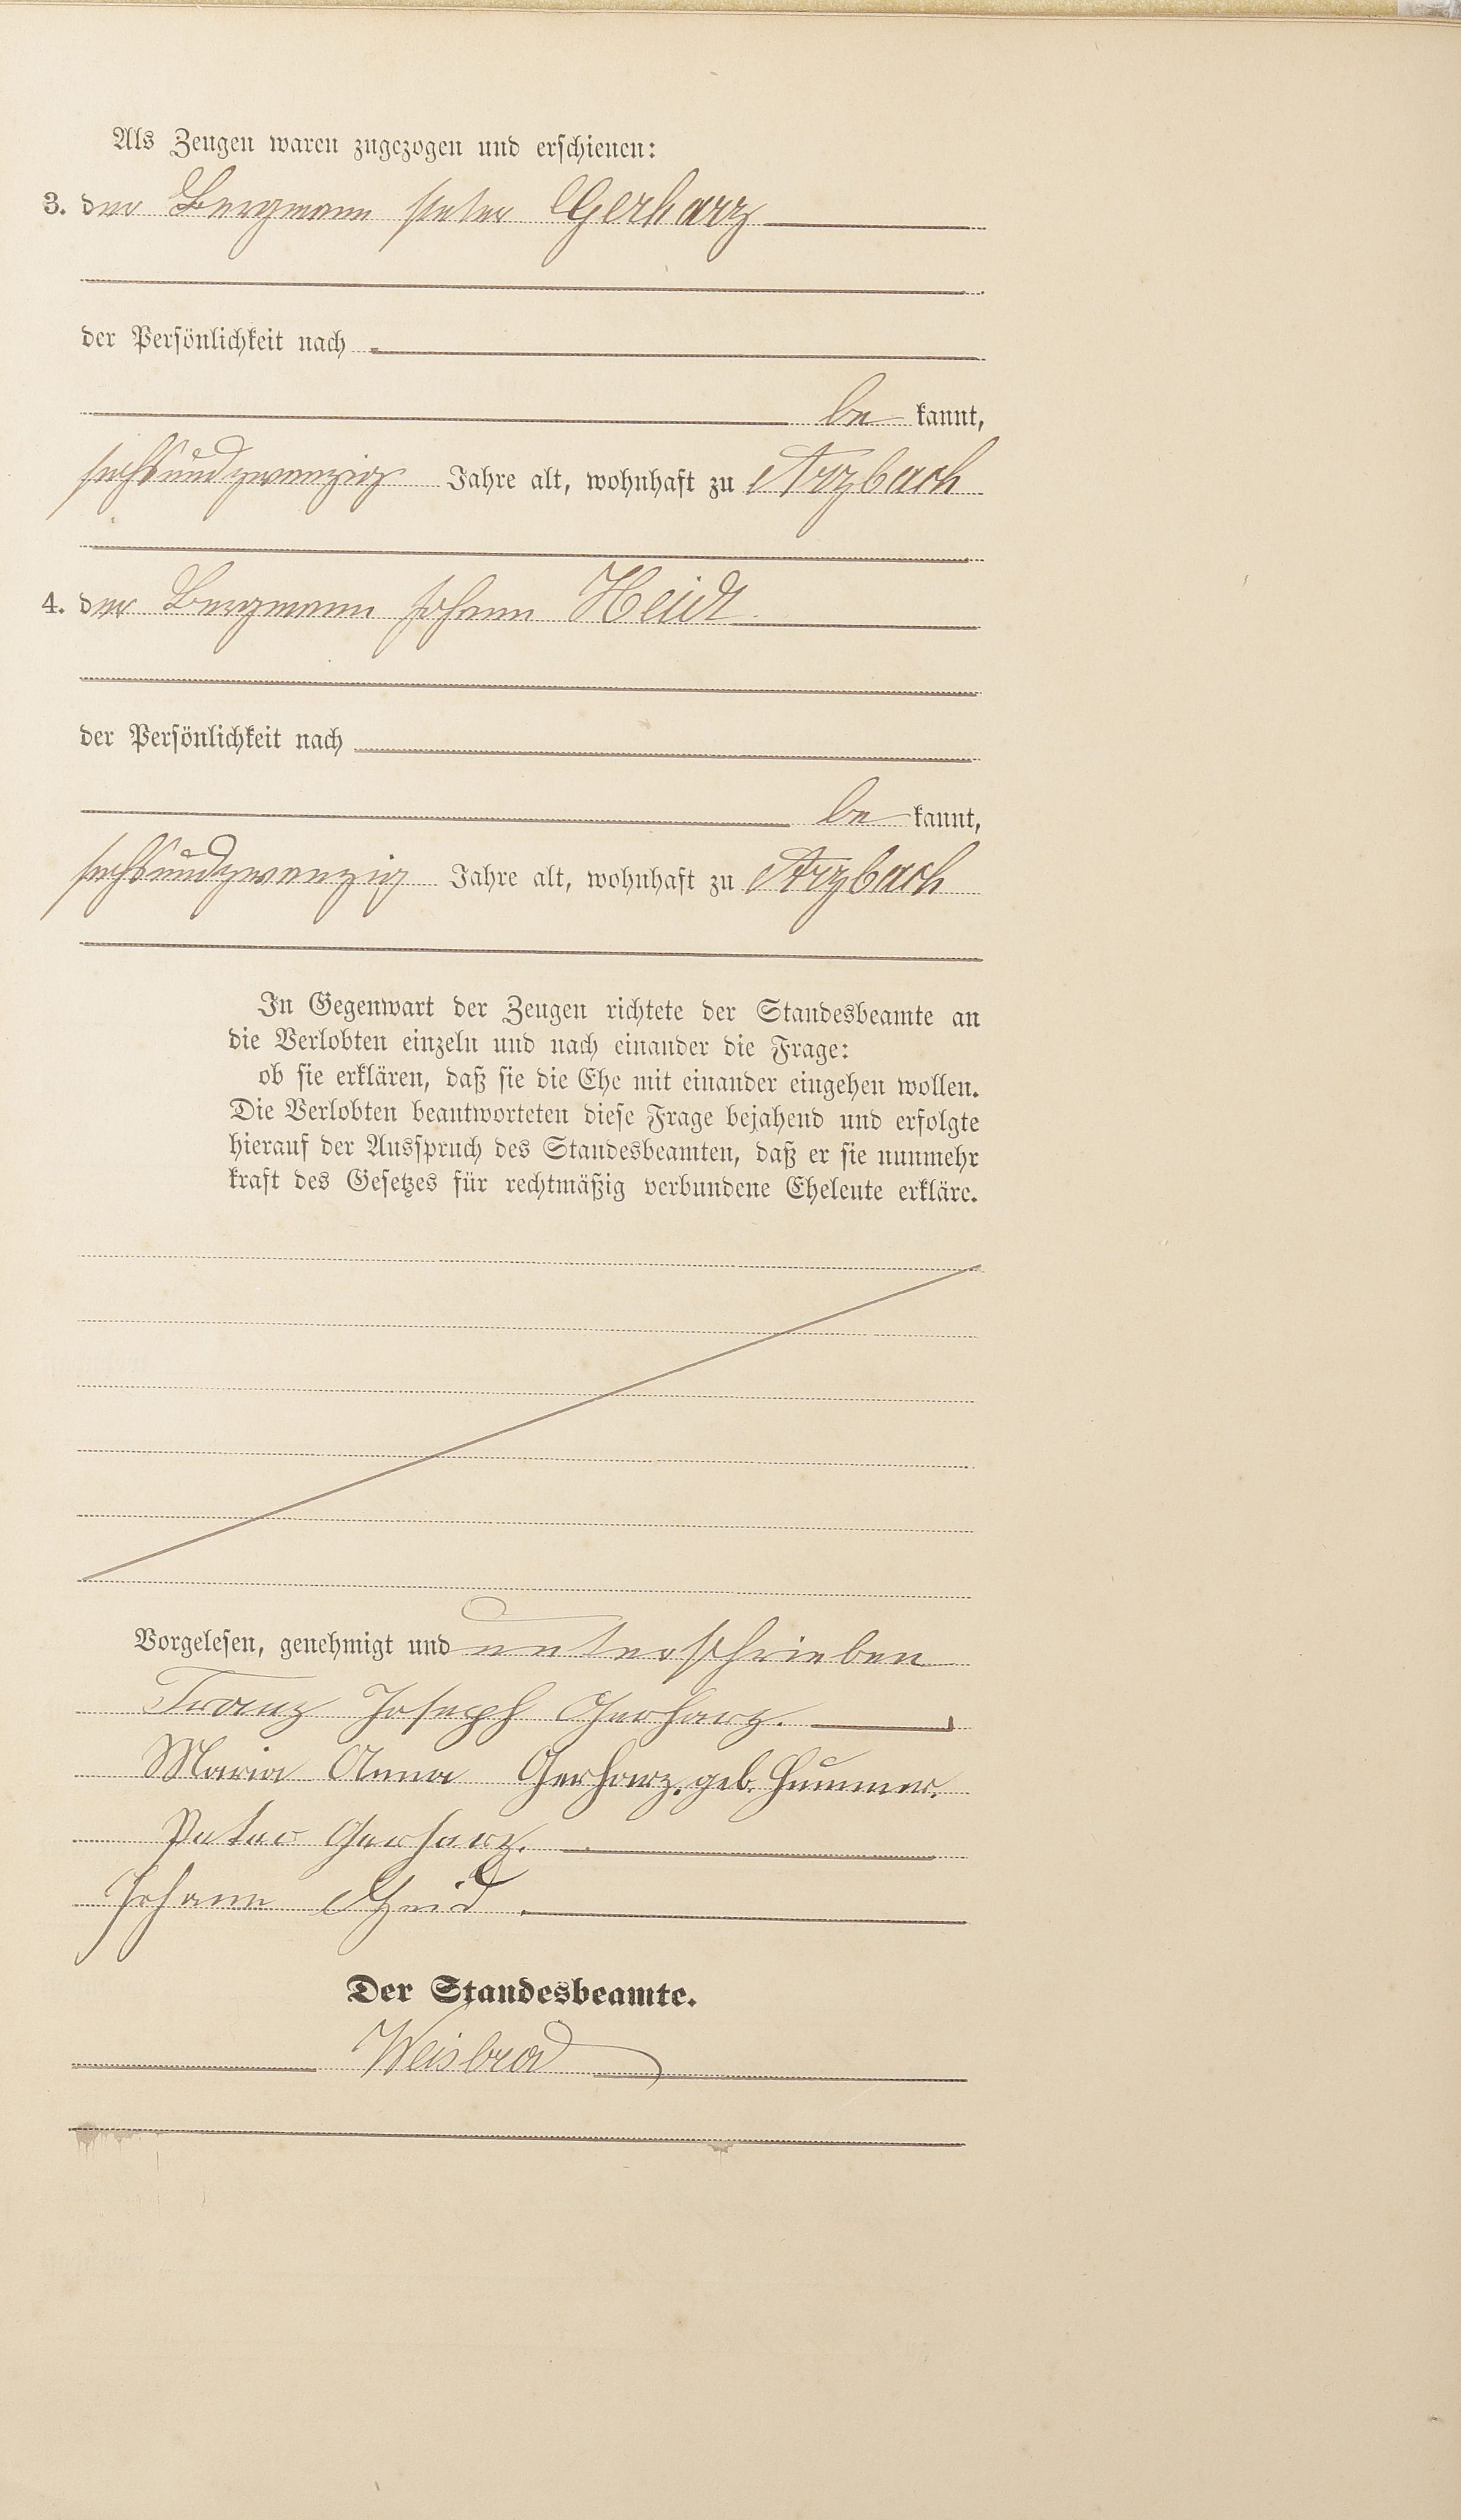 Als Zeugen waren zugezogen und erschienen:
3. der Bergmann Peter Gerharz
der Persönlichkeit nach
be kannt,
sechsundzwanzig Jahre alt, wohnhaft zu Arzbach
4. der Bergmann Johann Heidt
der Persönlichkeit nach
be kannt,
sechsundzwanzig Jahre alt, wohnhaft zu Arzbach
In Gegenwart der Zeugen richtete der Standesbeamte an
die Verlobten einzeln und nach einander die Frage:
ob sie erklären, daß sie die Ehe mit einander eingehen wollen.
Die Verlobten beantworteten diese Frage bejahend und erfolgte
hierauf der Ausspruch des Standesbeamten, daß er sie nunmehr
kraft des Gesetzes für rechtmäßig verbundene Eheleute erkläre.
Vorgelesen, genehmigt und unterschrieben
Franz Joseph Gerharz.
Maria Anna Gerharz. geb. Hummer.
Peter Gerharz.
Johann Heid.
Der Standesbeamte.
Weisbrod